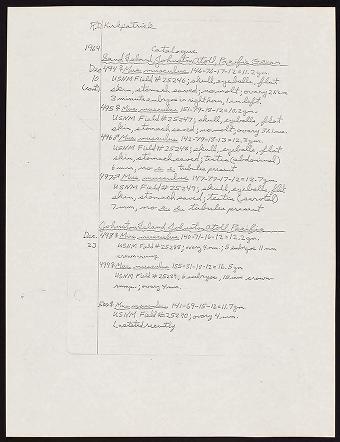 R.D. Kirkpatrick
1964 Catalogue
Sand Island, Johnston Atoll, Pacific Ocean
Dec 494♀ Mus musculus 146-76-17-12=11.7gm.
10 USNM Field #25246; skull, eyeballs, flat
(cont) skin, stomach saved; no molt; ovary 2½mm
3 minute embryos in right horn, 1 in left.
495♀ Mus musculus 151-79-18-12=10.2gm.
USNM Field #25247; skull, eyeballs, flat
skin, stomach saved; no molt; ovary 3½mm.
496♂ Mus musculus 142-79-18-13=12.3gm.
USNM Field #25248; skull, eyeballs, flat
skin, stomach saved; testis (abdominal)
6mm, no c. e. tubules present
497♂ Mus musculus 147-79-17-12=12.7gm.
USNM Field #25249; skull, eyeballs, flat
skin, stomach saved; testis (scrotal)
7mm, no c. e. tubules present
Johnston Island, Johnston Atoll, Pacific
Dec. 498♀ Mus musculus 140-71-16-12=12.2gm.
23 USNM Field #25288; ovary 4mm; 5 embryos 11mm
crown-rump
499♀ Mus musculus 155-81-18-12=16.5gm
USNM Field #25289; 6 embryos, 10mm crown-
rump; ovary 4mm.
500♀ Mus musculus 141-69-15-12=11.7gm.
USNM Field #25290; ovary 4mm.
Lactated recently